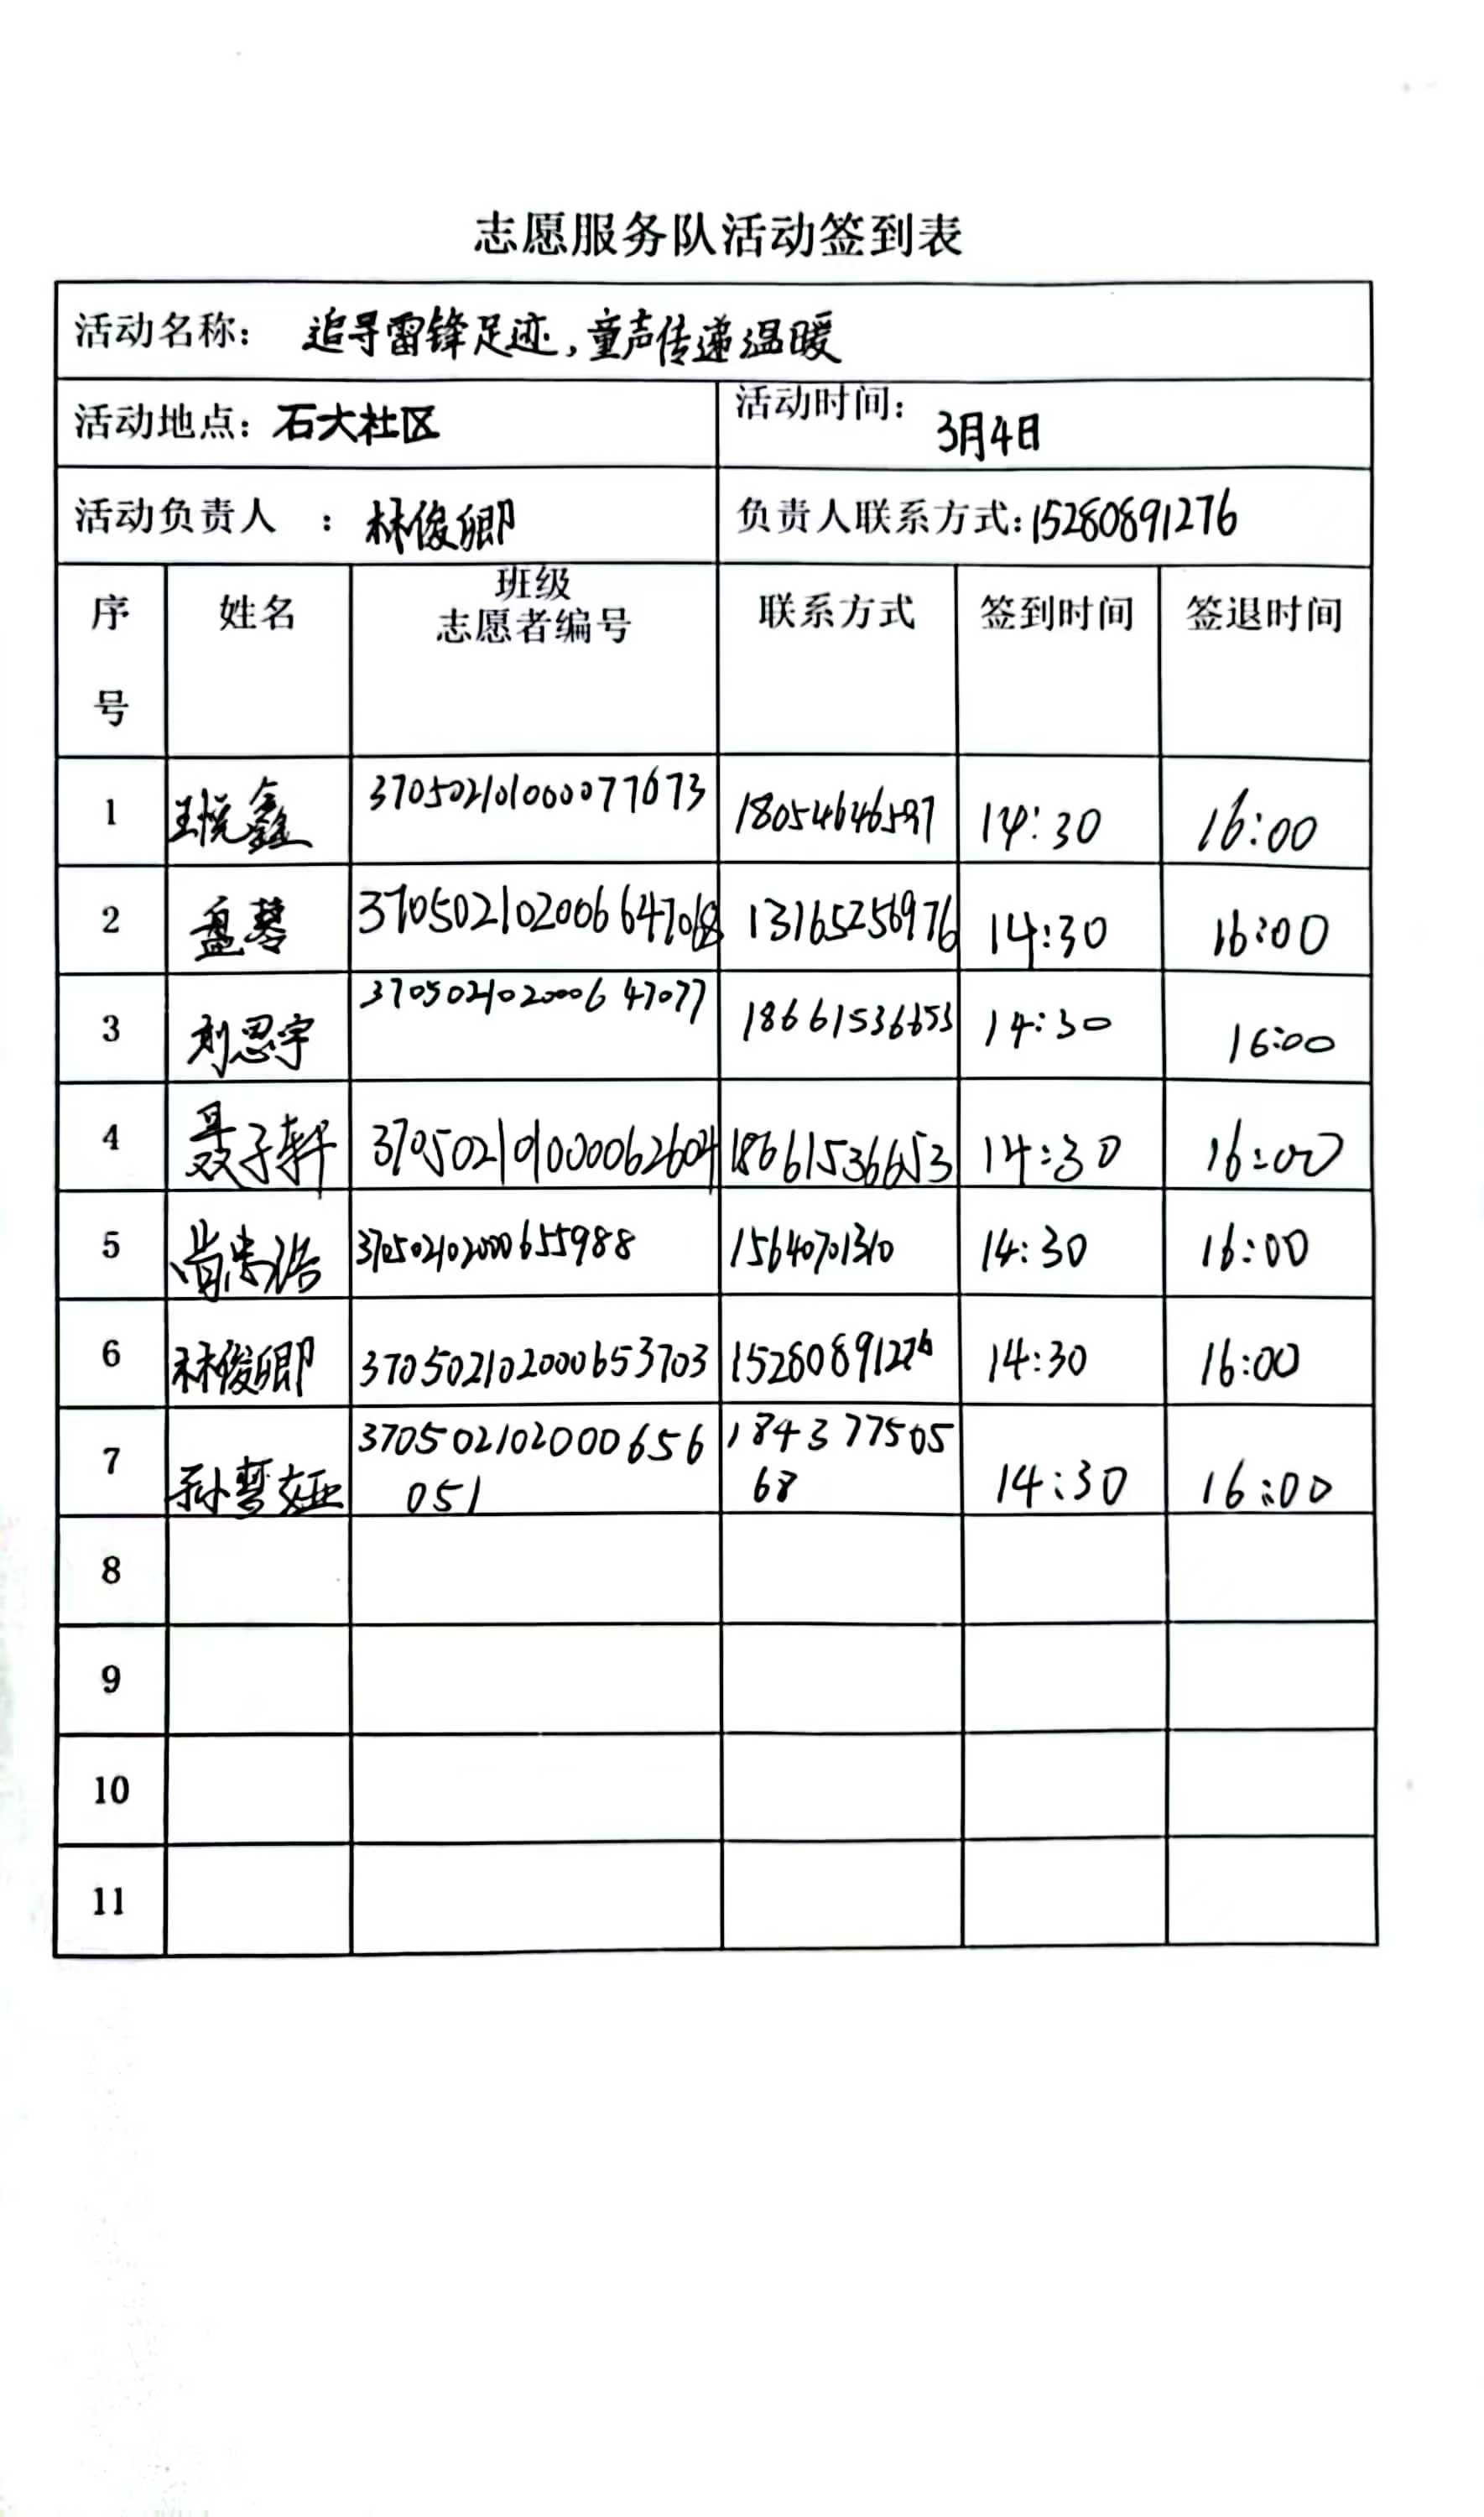 志愿服务队活动签到表
活动名称： 追寻雷锋足迹，童声传递温暖
活动地点：石大社区 活动时间：3月4日
活动负责人 ：林俊卿 负责人联系方式：15280891276
序号 姓名 班级 志愿者编号 联系方式 签到时间 签退时间
1 王悦鑫 14:30 16:00
2 盘琴 13165256976 14:30 16:00
3 刘思宇 370502102000647077 18661536653 14:30 16:00
4 聂子轩 370502101000062604 18661536653 14:30 16:00
5 370502102000655988 15640701310 14:30 16:00
6 林俊卿 370502102000653703 15280891276 14:30 16:00
7 孙梦娅 370502102000656051 18437750568 14:30 16:00
8
9
10
11